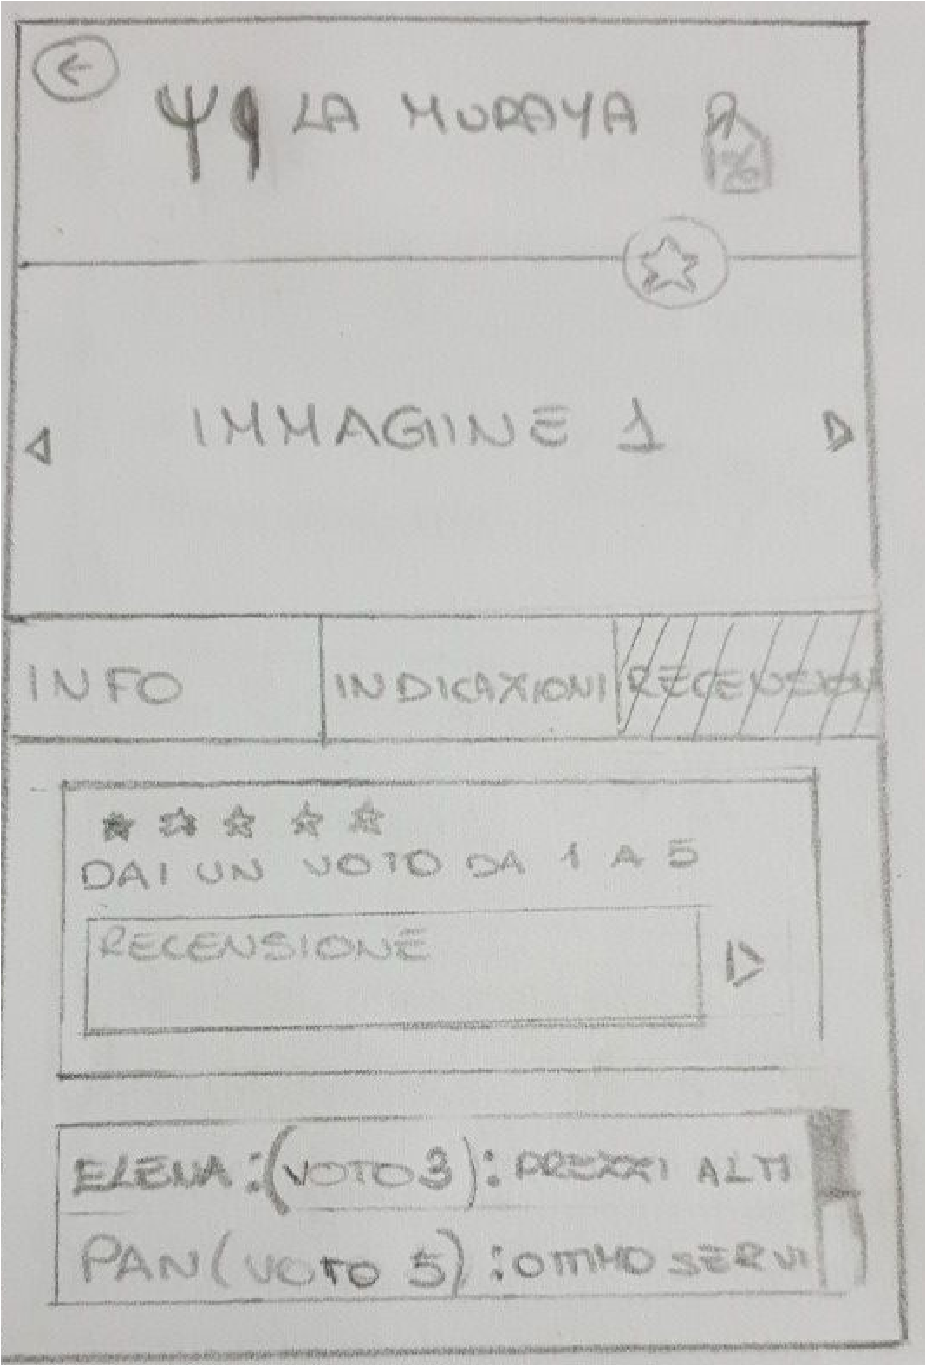 LA MURAYA
%
IMMAGIINE 1
INFO
INDICAZIONI
RECENSIONI
DAI UN VOTO DA 1 A 5
RECENSIONE
ELENA:(VOTO 3): PREZZI ALTI
PAN(VOTO 5):OTTIMO SERVI